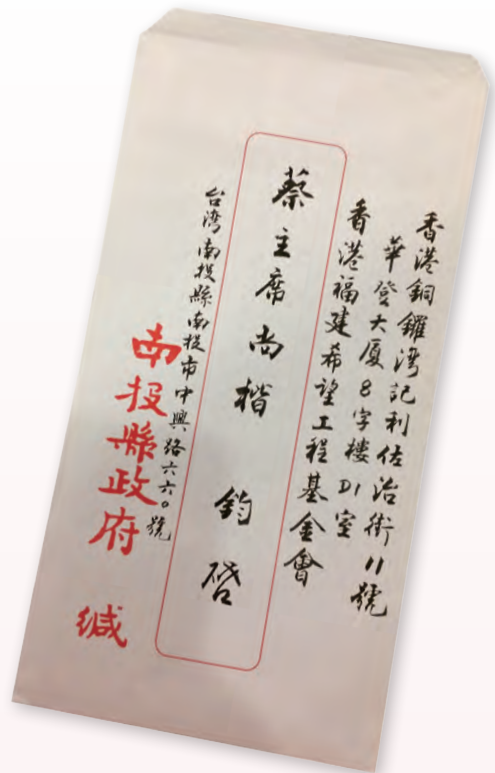 香港銅鑼灣記利佐治街11號
華登大廈8字樓D1室
香港福建希望工程基金會
蔡主席尚楷 鈞啓
台湾南投縣南投市中興路六六〇號
南投縣政府 緘